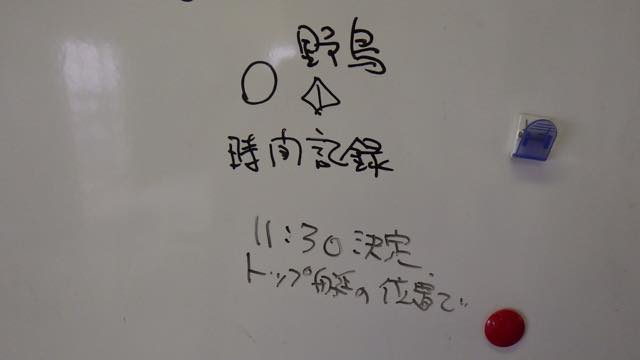 野鳥
時間記録
11:30決定
トップ艇の位置で